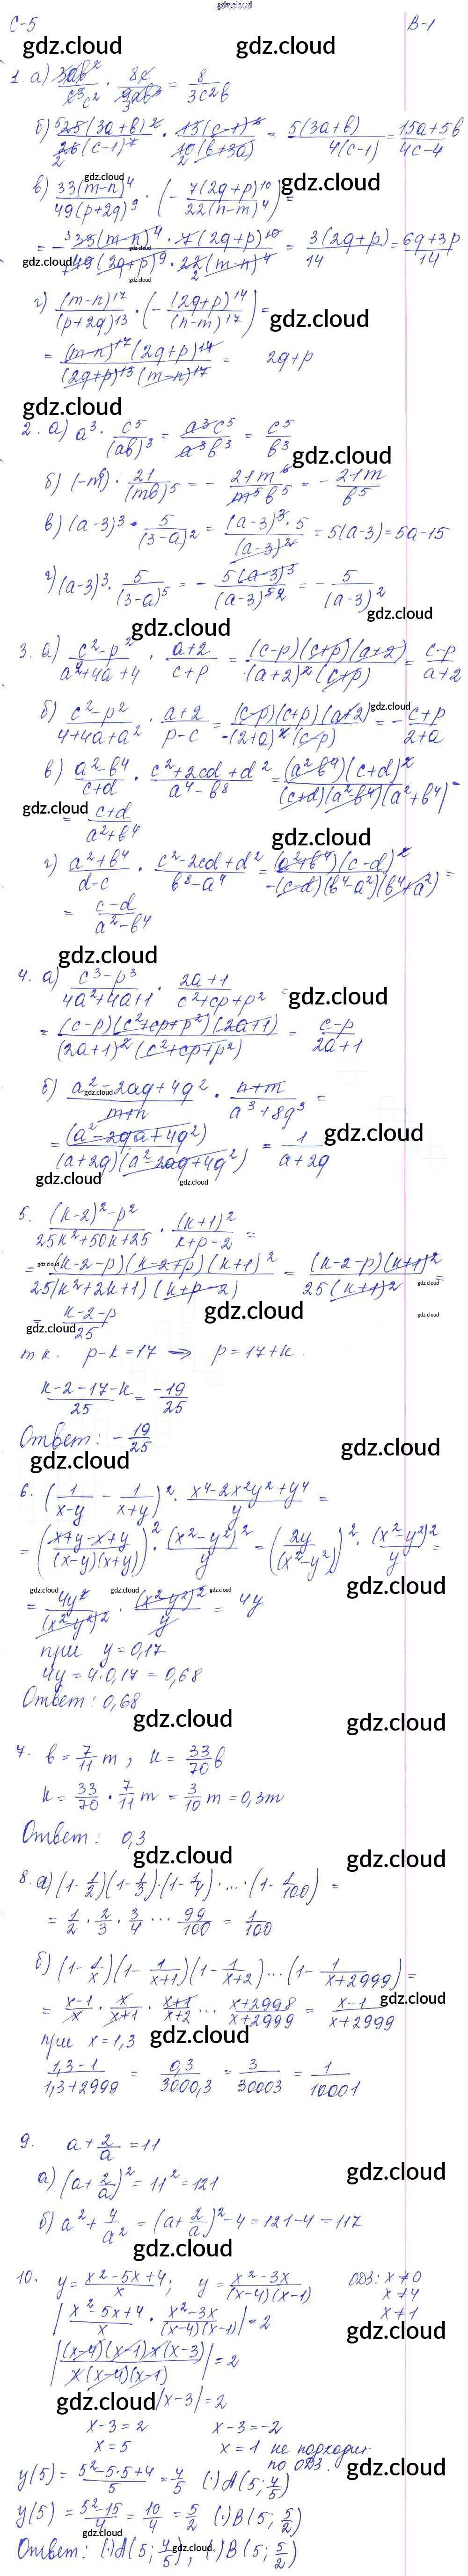 gdz.cloud
С-5 В-1
gdz.cloud gdz.cloud
1. а) 3ab²/c³c² · 8c/9ab³ = 8/3c²b
б) ⁵25(3a+b)²/28(c-1)² · 15(c-1)/10(b+3a) = 5(3a+b)/4(c-1) = 15a+5b/4c-4
gdz.cloud
в) 33(m-n)⁴/49(p+2q)⁹ · (- 7(2q+p)¹⁰/22(n-m)⁴) = gdz.cloud
= - ³33(m-n)⁴ · 7(2q+p)¹⁰/49(2q+p)⁹ · 22(m-n)⁴ = 3(2q+p)/14 = 6q+3p/14
gdz.cloud gdz.cloud
г) (m-n)¹⁷/(p+2q)¹³ · (- (2q+p)¹⁴/(n-m)¹⁷) = gdz.cloud
= (m-n)¹⁷(2q+p)¹⁴/(2q+p)¹³(m-n)¹⁷ = 2q+p
gdz.cloud
2. а) a³ · c⁵/(ab)³ = a³c⁵/a³b³ = c⁵/b³
gdz.cloud
б) (-m⁶) · 21/(mb)⁵ = - 21m⁶/m⁵b⁵ = - 21m/b⁵
в) (a-3)³ · 5/(3-a)² = (a-3)³ · 5/(a-3)² = 5(a-3) = 5a-15
г) (a-3)³ · 5/(3-a)⁵ = - 5(a-3)³/(a-3)⁵ ² = - 5/(a-3)²
gdz.cloud
gdz.cloud
3. а) c²-p²/a²+4a+4 · a+2/c+p = (c-p)(c+p)(a+2)/(a+2)²(c+p) = c-p/a+2
б) c²-p²/4+4a+a² · a+2/p-c = (c-p)(c+p)(a+2)/-(2+a)²(c-p) = - c+p/2+a
gdz.cloud
в) a²-b⁴/c+d · c²+2cd+d²/a⁴-b⁸ = (a²-b⁴)(c+d)²/(c+d)(a²-b⁴)(a²+b⁴) =
gdz.cloud = c+d/a²+b⁴
gdz.cloud
г) a²+b⁴/d-c · c²-2cd+d²/b⁸-a⁴ = (a²+b⁴)(c-d)²/-(c-d)(b⁴-a²)(b⁴+a²) =
= c-d/a²-b⁴
gdz.cloud
4. а) c³-p³/4a²+4a+1 · 2a+1/c²+cp+p² = gdz.cloud
= (c-p)(c²+cp+p²)(2a+1)/(2a+1)²(c²+cp+p²) = c-p/2a+1
б) a²-2aq+4q²/m+n · n+m/a³+8q³ =
gdz.cloud
= (a²-2qa+4q²)/(a+2q)(a²-2aq+4q²) = 1/a+2q gdz.cloud
gdz.cloud gdz.cloud
5. (k-2)²-p²/25k²+50k+25 · (k+1)²/k+p-2 =
gdz.cloud
= (k-2-p)(k-2+p)(k+1)²/25(k²+2k+1)(k+p-2) = (k-2-p)(k+1)²/25(k+1)² =
gdz.cloud
= k-2-p/25 gdz.cloud gdz.cloud
gdz.cloud
т.к. p-k=17 ⟹ p=17+k.
k-2-17-k/25 = -19/25
Ответ: - 19/25
gdz.cloud gdz.cloud
6. (1/x-y - 1/x+y)² · x⁴-2x²y²+y⁴/y =
= (x+y-x+y/(x-y)(x+y))² · (x²-y²)²/y = (2y/(x²-y²))² · (x²-y²)²/y =
gdz.cloud gdz.cloud gdz.cloud gdz.cloud
= 4y²/(x²-y²)² · (x²-y²)²/y = 4y
при y=0,17
4y = 4·0,17 = 0,68
Ответ: 0,68
gdz.cloud gdz.cloud
7. b = 7/11 m, k = 33/70 b
k = 33/70 · 7/11 m = 3/10 m = 0,3m
Ответ: 0,3
gdz.cloud gdz.cloud
8. а) (1-1/2)(1-1/3)·(1-1/4)·...·(1-1/100) =
= 1/2 · 2/3 · 3/4 ··· 99/100 = 1/100
б) (1-1/x)(1-1/x+1)(1-1/x+2)...(1-1/x+2999) =
= x-1/x · x/x+1 · x+1/x+2 ... x+2998/x+2999 = x-1/x+2999
gdz.cloud
при x=1,3 gdz.cloud
1,3-1/1,3+2999 = 0,3/3000,3 = 3/30003 = 1/10001
9. a+2/a = 11
gdz.cloud
а) (a+2/a)² = 11² = 121
б) a²+4/a² = (a+2/a)²-4 = 121-4 = 117
gdz.cloud gdz.cloud
10. y = x²-5x+4/x; y = x²-3x/(x-4)(x-1) ОДЗ: x≠0
x≠4
x≠1
|x²-5x+4/x · x²-3x/(x-4)(x-1)| = 2
gdz.cloud
|(x-4)(x-1)x(x-3)/x(x-4)(x-1)| = 2
gdz.cloud |x-3| = 2 gdz.cloud
x-3=2 x-3=-2
x=5 x=1 не подходит
по ОДЗ.
gdz.cloud
y(5) = 5²-5·5+4/5 = 4/5 (·)A(5; 4/5)
y(5) = 5²-15/4 = 10/4 = 5/2 (·)B(5; 5/2)
gdz.cloud
Ответ: (·)A(5; 4/5), (·)B(5; 5/2)
gdz.cloud gdz.cloud